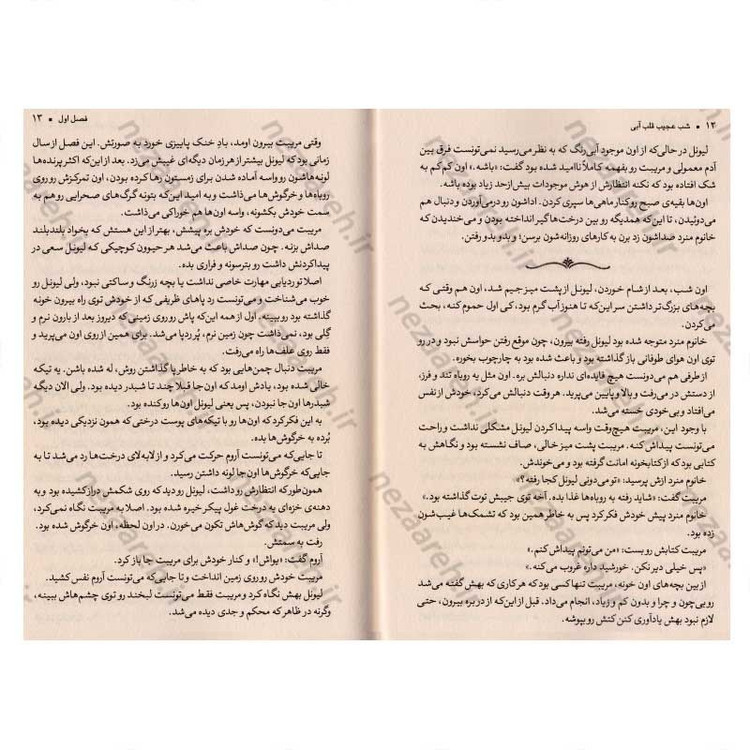 ۱۲ • شب عجیب قلب آبی
لیونل در حالی‌که از اون موجود آبی‌رنگ که به نظر می‌رسید نمی‌تونست فرق بین
آدم معمولی و مریبت رو بفهمه کاملاً ناامید شده بود گفت: «باشه.» اون کم‌کم به
شک افتاده بود که نکنه انتظارش از هوش موجودات بیش‌ازحد زیاد بوده باشه.
اون‌ها بقیه‌ی صبح رو کنار ماهی‌ها سپری کردن. اداشون رو درمی‌آوردن و دنبال هم
می‌دوئیدن، تا این‌که همدیگه رو بین درخت‌ها گیر انداخته بودن و می‌خندیدن که
خانوم منرد صداشون زد برن به کارهای روزانه‌شون برسن؛ و بدو بدو رفتن.
اون شب، بعد از شام خوردن، لیونل از پشت میز جیم شد، اون هم وقتی که
بچه‌های بزرگ‌تر داشتن سر این‌که تا هنوز آب گرم بود، کی اول حموم کنه، بحث
می‌کردن.
خانوم منرد متوجه شده بود لیونل رفته بیرون، چون موقع رفتن حواسش نبود و در رو
توی اون هوای طوفانی باز گذاشته بود و باعث شده بود به چارچوب بخوره.
از طرفی هم می‌دونست هیچ فایده‌ای نداره دنبالش بره. اون مثل یه روباه تند و فرز،
از دستش در می‌رفت و بالا و پایین می‌پرید. هر وقت دنبالش می‌کرد، خودش از نفس
می‌افتاد و بی‌خودی خسته می‌شد.
با وجود این، مریبت هیچ‌وقت واسه پیدا کردن لیونل مشکلی نداشت و راحت
می‌تونست پیداش کنه. مریبت پشت میز خالی، صاف نشسته بود و نگاهش به
کتابی بود که از کتابخونه امانت گرفته بود و می‌خوندش.
خانوم منرد ازش پرسید: «تو می‌دونی لیونل کجا رفته؟»
مریبت گفت: «شاید رفته به روباه‌ها غذا بده. آخه توی جیبش توت گذاشته بود.»
خانوم منرد پیش خودش فکر کرد پس به خاطر همین بود که تشمک‌ها غیب‌شون
زده بود.
مریبت کتابش رو بست: «من می‌تونم پیداش کنم.»
«پس خیلی دیر نکن. خورشید داره غروب می‌کنه.»
از بین بچه‌های اون خونه، مریبت تنها کسی بود که هر کاری که بهش گفته می‌شد
رو بی‌چون و چرا و بدون کم و زیاد، انجام می‌داد. قبل از این‌که از در بره بیرون، حتی
لازم نبود بهش یادآوری کنن کتش رو بپوشه.
فصل اول • ۱۳
وقتی مریبت بیرون اومد، بادِ خنک پاییزی خورد به صورتش. این فصل از سال
زمانی بود که لیونل بیشتر از هر زمان دیگه‌ای غیبش می‌زد. بعد از این‌که اکثر پرنده‌ها
لونه‌هاشون رو واسه آماده شدن برای زمستون رها کرده بودن، اون تمرکزش رو روی
روباه‌ها و خرگوش‌ها می‌ذاشت و به امید این‌که بتونه گرگ‌های صحرایی رو هم به
سمت خودش بکشونه، واسه اون‌ها هم خوراکی می‌ذاشت.
مریبت می‌دونست که خودش بره پیشش، بهتر از این هستش که بخواد بلندبلند
صداش بزنه. چون صداش باعث می‌شد هر حیوون کوچیکی که لیونل سعی در
پیدا کردنش داشت رو بترسونه و فراری بده.
اصلاً تو ردیابی مهارت خاصی نداشت یا بچه زرنگ و ساکتی نبود، ولی لیونل رو
خوب می‌شناخت و می‌تونست رد پاهای ظریفی که از خودش توی راه بیرون خونه
گذاشته بود رو ببینه. اول از همه این‌که پاش رو روی زمینی که دیروز بعد از بارون نرم و
گِلی بود، نمی‌ذاشت چون زمین نرم، پُر ردپا می‌شد. برای همین از روی اون می‌پرید و
فقط روی علف‌ها راه می‌رفت.
مریبت دنبال چمن‌هایی بود که به خاطر پا گذاشتن روش، له شده باشن. یه تیکه
خالی شده بود، یادش اومد که اون‌جا قبلا چند تا شبدر دیده بود. ولی الان دیگه
شبدرها اون‌جا نبودن، پس یعنی لیونل اون‌ها رو کنده بود.
به این فکر کرد که اون‌ها رو با تیکه‌های پوست درختی که همون نزدیکی دیده بود،
بُرده به خرگوش‌ها بده.
تا جایی‌که می‌تونست آروم حرکت می‌کرد و از لابه‌لای درخت‌ها رد می‌شد تا به
جایی‌که خرگوش‌ها اون‌جا لونه داشتن رسید.
همون‌طور که انتظارش رو داشت، لیونل رو دید که روی شکمش دراز کشیده بود و به
دهنه‌ی خزه‌ای یه درخت غول پیکر خیره شده بود. اصلا به مریبت نگاه نمی‌کرد،
ولی مریبت دید که گوش‌هاش تکون می‌خورن. در اون لحظه، اون خرگوش شده بود.
رفت به سمتش.
آروم گفت: «یواش!» و کنار خودش برای مریبت جا باز کرد.
مریبت خودش رو روی زمین انداخت و تا جایی‌که می‌تونست آروم نفس کشید.
لیونل بهش نگاه کرد و مریبت فقط می‌تونست لبخند رو توی چشم‌هاش ببینه،
وگرنه در ظاهر که محکم و جدی دیده می‌شد.
nezaareh.ir